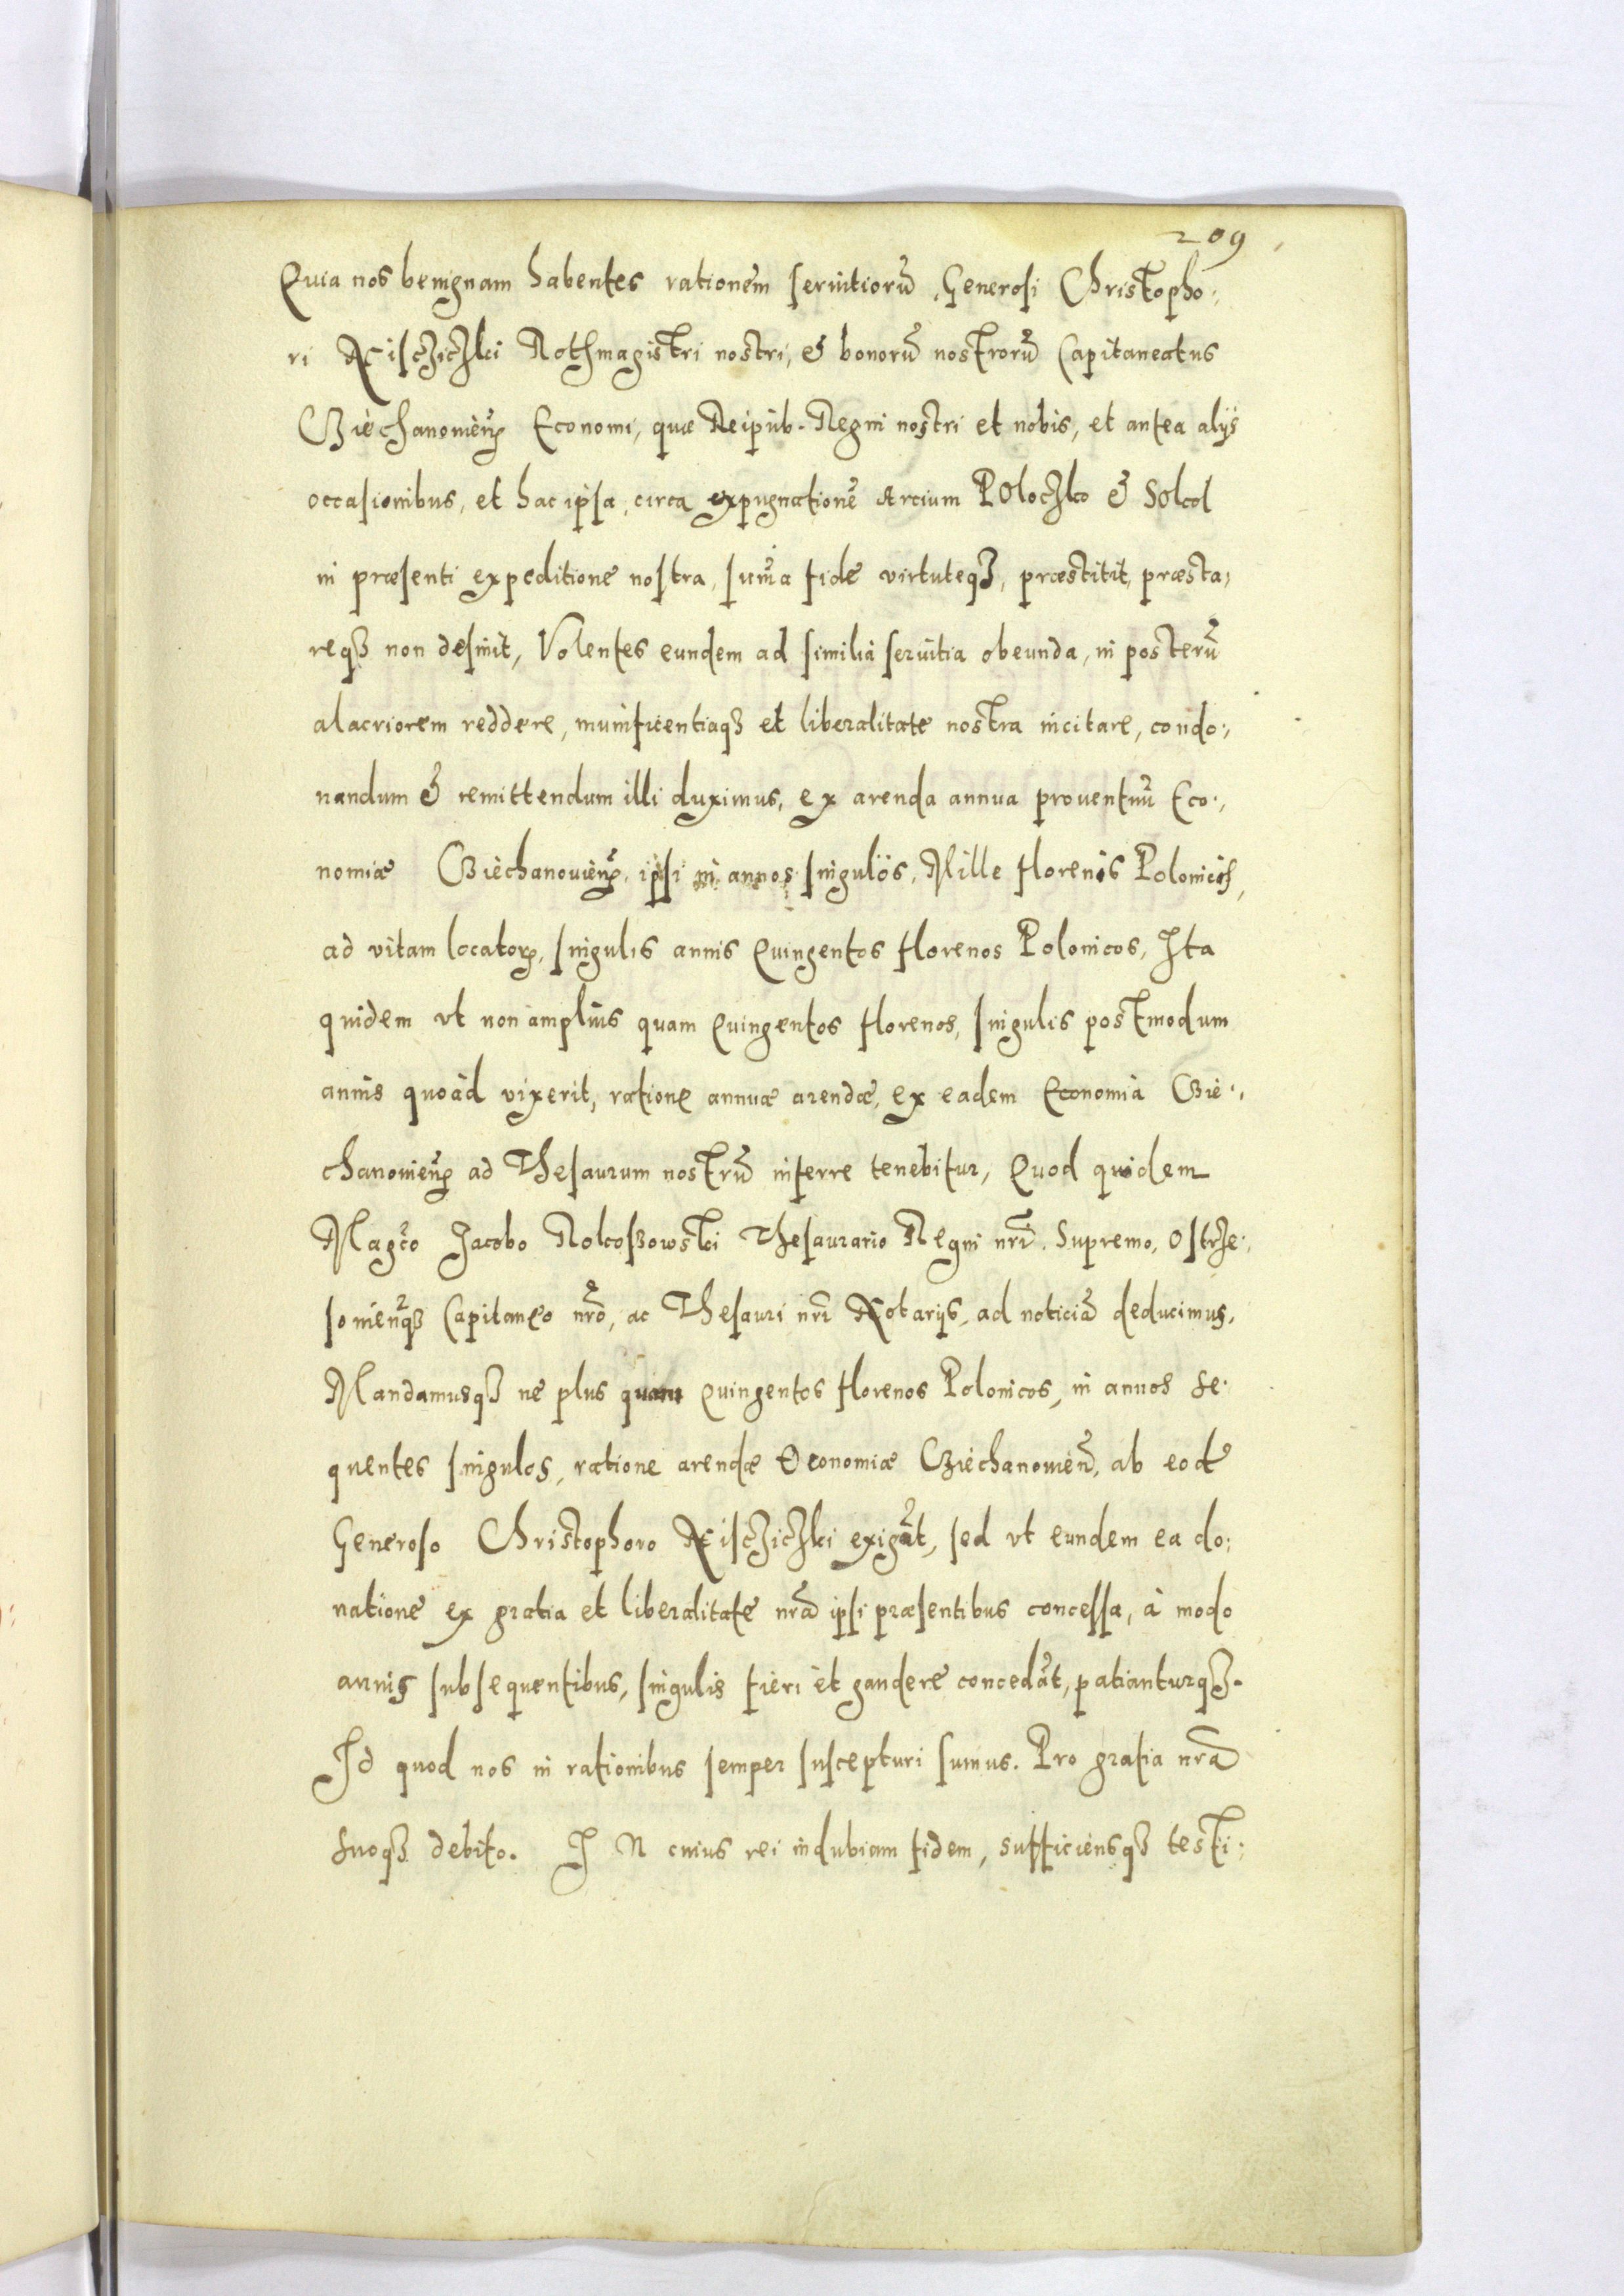 209
Quia nos benignam habentes rationem seruitiorũ, Generosi Christopho:
ri Nisczickj Rothmagistri nostri, & bonorũ nostrorũ Capitaneatus
Cziechanouieñ Economi, quæ Reipub. Regni nostri et nobis, et antea alijs
occasionibus, et hac ipsa, circa expugnationẽ Arcium POloczko & SOkol
in præsenti expeditione nostra, sum̃a fide virtuteqȝ, præstitit, præsta:
reqȝ non desinit, Volentes eundem ad similia seruitia obeunda, in posterũ
alacriorem reddere, munificentiaqȝ et liberalitate nostra incitare, condo:
nandum & remittendum illi duximus, ex arenda annua prouentuũ Eco:
nomiæ Cziechanouieñ, ipsi in annos singulos, Mille florenis Polonicis,
ad vitam locatoꝝ, singulis annis Quingentos florenos Polonicos, Ita
quidem vt non amplius quam Quingentos florenos, singulis postmodum
annis quoad vixerit, ratione annuæ arendæ, ex eadem Economia Czie:
chanouieñ ad Thesaurum nostrũ inferre tenebitur, Quod quidem
Magc̃o Jacobo Rokoszowski Thesaurario Regni nrĩ Supremo, Ostrze:
souieñqȝ Capitaneo nrõ, ac Thesauri nrĩ Notarijs, ad noticiã deducimus,
Mandamusqȝ ne plus quam Quingentos florenos Polonicos, in annos se:
quentes singulos, ratione arendæ Economiæ Cziechanouieñ, ab eodẽ
Generoso Christophoro Nisczickj exigãt, sed vt eundem ea do:
natione ex gratia et liberalitate nrã ipsi præsentibus concessa, à modo
annis subsequentibus, singulis frui et gaudere concedãt, patianturqȝ.
Id quod nos in rationibus semper suscepturi sumus. Pro gratia nrã
suoqȝ debito. I N cuius rei indubiam fidem, sufficiensqȝ testi: